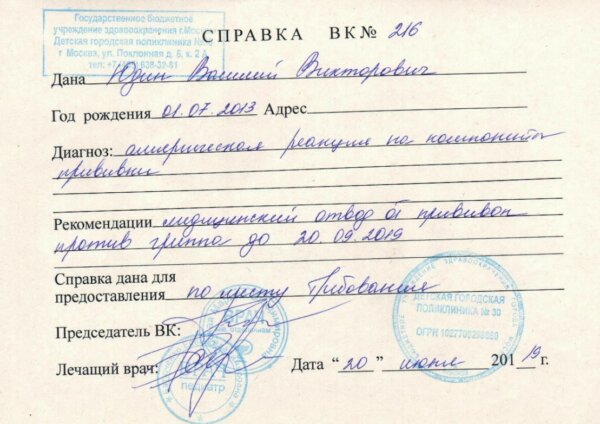 Государственное бюджетное
учреждение здравоохранения г.Москвы
Детская городская поликлиника
г Москва, ул. Поклонная д. 8, к. 2
тел:
СПРАВКА ВК № 216
Дана Юдин Василий Викторович
Год рождения 01.07.2013 Адрес
Диагноз: аллергическая реакция на компоненты
прививки
Рекомендации медицинский отвод от прививок
против гриппа до 20.09.2019
Справка дана для
предоставления по месту требования
Председатель ВК:
ВРАЧ
ДЕТСКАЯ ГОРОДСКАЯ
ПОЛИКЛИНИКА № 30
ОГРН
Лечащий врач:
педиатр
Дата "20" июля 2019 г.